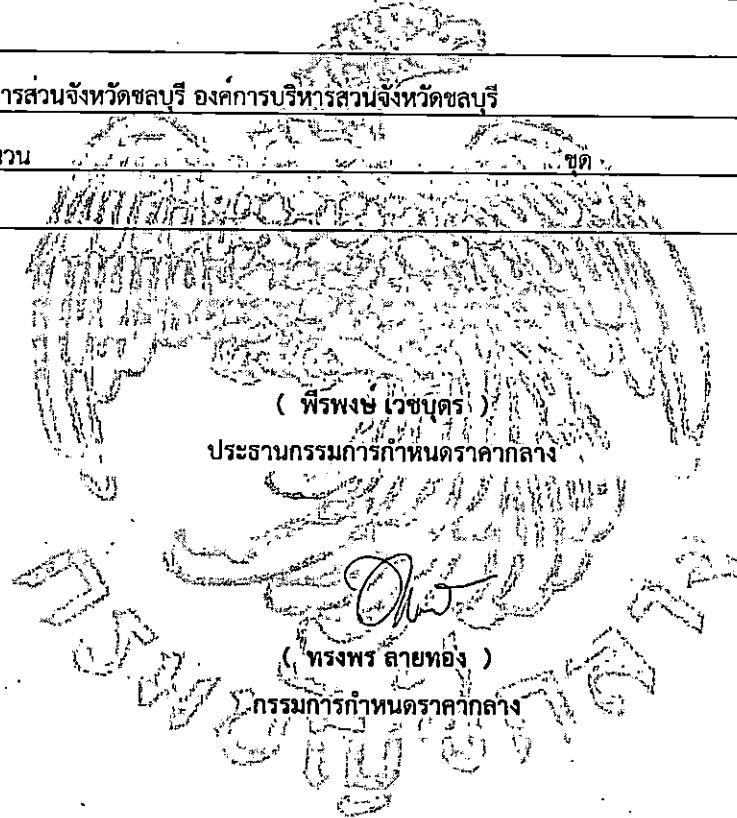 ารส่วนจังหวัดชลบุรี องค์การบริหารส่วนจังหวัดชลบุรี
นวน ชุด
( พีรพงษ์ เวชบุตร )
ประธานกรรมการกำหนดราคากลาง
( ทรงพร ลายทอง )
กรรมการกำหนดราคากลาง
กรมบัญชีกลาง